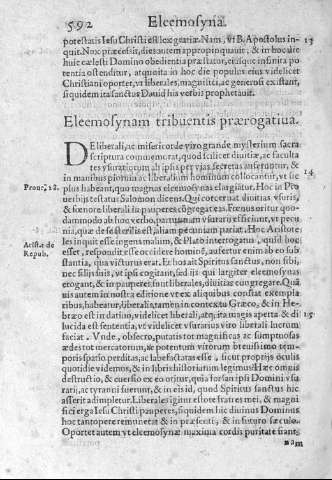 592 Eleemosyna.
potestatis Iesu Christi est lex gratiæ. Nam, vt B. Apostolus in- 13
quit. Nox præcessit, dies autem appropinquauit, & in hoc die
huic cælesti Domino obedientia præstatur, eiusque infinita po
tentia ostenditur, atque ita in hoc die populus eius videlicet
Christiani oportet, vt liberales, magnifici, ac generosi existant,
siquidem ita sanctus Dauid his verbis prophetauit.
Eleemosynam tribuentis prærogatiua.
DE liberali, ac misericorde viro grande mysterium sacra
scriptura commemorat, quod scilicet diuitiæ, ac faculta
tes vsurariorum ab ipsis per vias secretas auferuntur, & 14
in manibus piorum ac liberalium hominum collocantur, vt sic
Prouer. 12. plus habeant, quo magnas eleemosynas elargiātur. Hoc in Pro
uerbijs testatur Salomon dicens. Qui coaceruat diuitias vsuris,
& fœnore liberali in pauperes cōgregat eas. Fœnus oritur quo
dammodo ab hoc verbo, parturio in vsurario efficiunt, vt pecu
nia, quæ de se sterilis est, aliam pecuniam pariat. Hoc Aristote
Arist. de les inquit esse ingens malum, & Plato interrogatus, quid hoc
Repub. esset, respondit esse occidere hominē, aufertur enim ab eo sub
stantia, qua victurus erat. Et bona it Spiritus sanctus, non sibi,
nec filijs inijs, vt ipsi cogitant, sed ijs qui largiter eleemosynas
erogant, & in pauperes sunt liberales, diuitias congregare. Quā
uis autem in nostra editione vt ex aliquibus constat exempla
ribus, habeatur, liberali, tamen in contextu Græco, & in He-
bræo est in datiuo, videlicet liberali, atq, ita magis aperta & di 15
lucida est sententia, vt videlicet vsurarius viro liberali lucrum
faciat. Vnde, obsecro, putatis tot magnificas ac sumptuosas
ædes tot mercatorum, ac potentum virorum breuissimo tem-
poris spatio perditas, ac labefactatas esse, sicut proprijs oculis
quotidie videmus, & in libris historiarum legimus? Hæc omnis
destructio, & euersio ex eo oritur, quia forsan ipsi Domini vsu
rarij, ac tyranni fuerunt, & in eis id, quod Spiritus sanctus hic
asserit adimpletur. Liberales igitur estote fratres mei, & magni
fici erga Iesu Christi pauperes, siquidem hic diuinus Dominus
hoc tantopere remunerat & in præsenti, & in futuro sæculo.
Oportet autem vt eleemosynæ maxima cordis puritate fiant,
nam